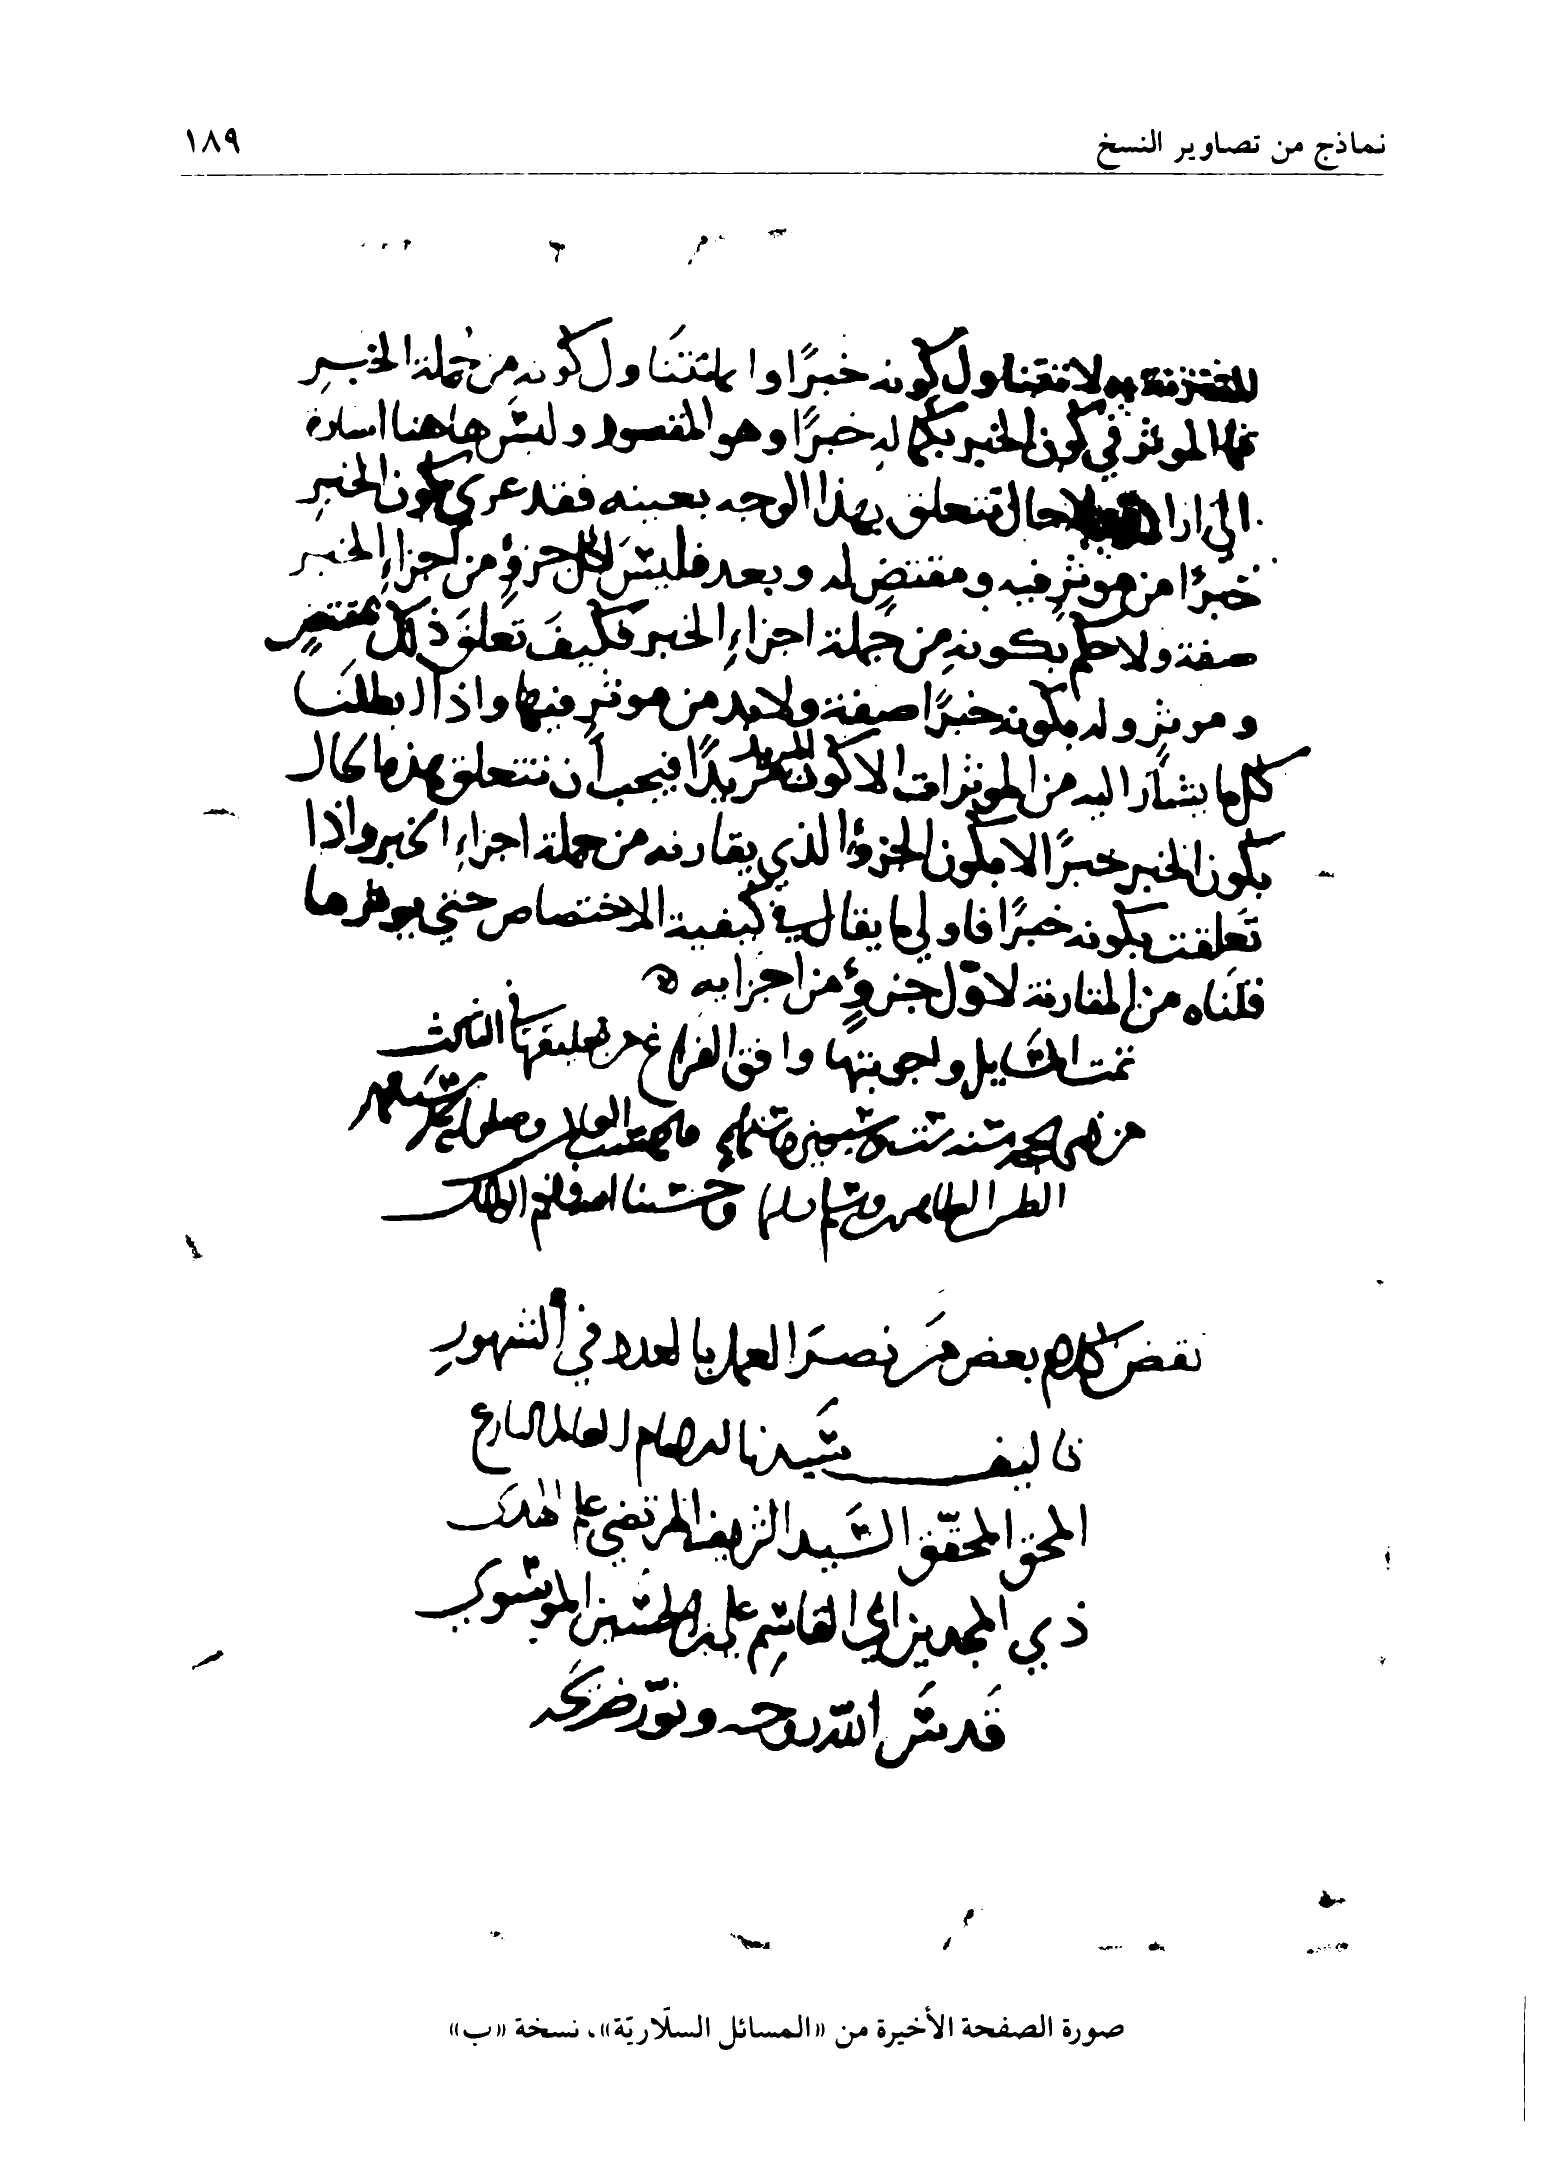 نماذج من تصاوير النسخ ١٨٩
للمقترنة به لا تتناول كونه خبرًا وانما تتناول كونه من جملة الخبر
فما المؤثر في كون الخبر بكماله خبرًا وهو المقصود وليس هاهنا اشارة
الى ارادة ولا حال تتعلق بهذا الوجه بعينه فقد عري كون الخبر
خبرًا من موثر فيه ومقتضٍ له وبعد فليس لكل جزؤٍ من اجزاءِ الخبر
صفة ولا حكم بكونهِ من جملة اجزاءِ الخبر فكيفَ تعلقَ ذلك بمقتضٍ
وموثرٍ وله بكونه خبرًا صفة ولا بد من موثرٍ فيها واذا ابطلنَا
كل ما يشار اليه من الموثرات الا كون المريد مريدًا فيجب أن تتعلق هذه الحال
بكون الخبر خبرًا لا بكون الجزؤ الذي يقارنه من جملة اجزاءِ الخبر واذا
تعلقت بكونه خبرًا فاولى ما يقال في كيفية الاختصاص حتى يوثر ما
قلناه من المقارنة لاوّل جزؤٍ من اجزايه
تمت المسايل واجوبتها وافق الفراغ من تعليقها في الثالث
من ذي الحجة سنة ست وسبعين وستمائة
الطاهرين وسلم وحسبنا الله ونعم الوكيل
نقض كلام بعض من نصر العمل بالعدد في الشهور
تاليف سيدنا الامام العالم البارع
المحق المحقّق السيد الشريف المرتضى علم الهدى
ذي المجدين ابي القاسم علي بن الحسين الموسوي
قدس اللّه روحه ونوّر ضريحه
صورة الصفحة الأخيرة من «المسائل السلّاريّة»، نسخة «ب»